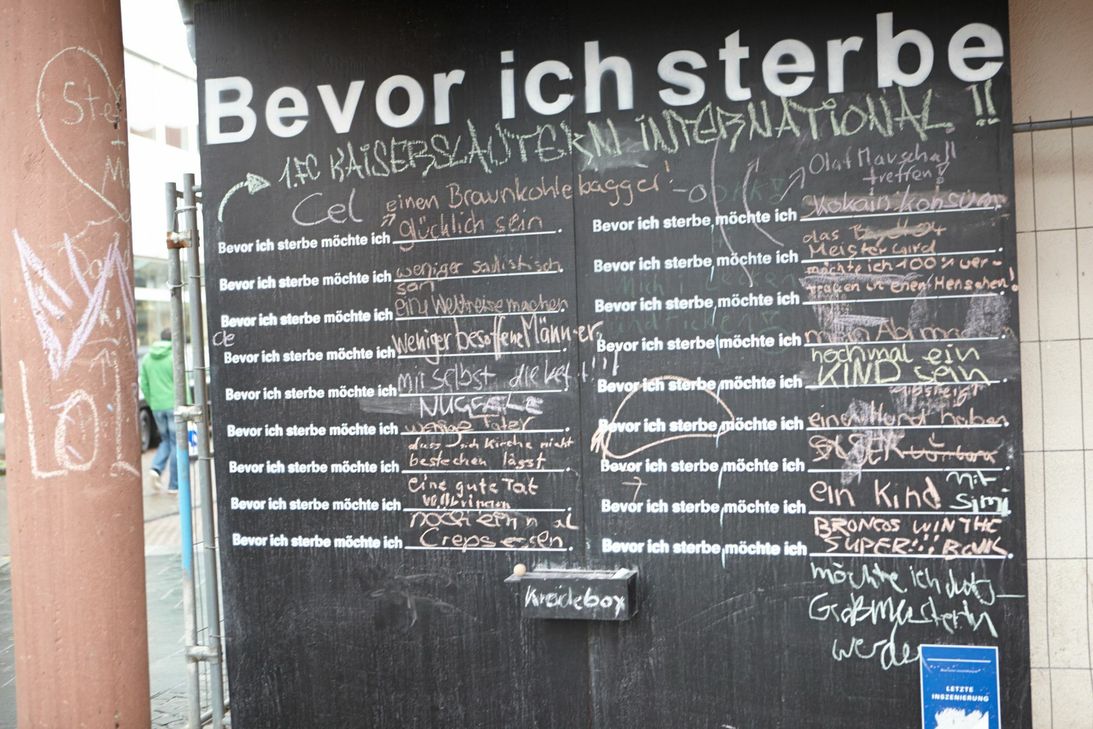 Bevor ich sterbe
1.FC KAISERSLAUTERN INTERNATIONAL !!
Cel
einen Brownkohlebagger!
Bevor ich sterbe möchte ich glücklich sein.
Bevor ich sterbe möchte ich weniger sadistisch.
sein
Bevor ich sterbe möchte ich eine Weltreise machen
Bevor ich sterbe möchte ich weniger besoffene Männer.
Bevor ich sterbe möchte ich mir selbst die !!!
Bevor ich sterbe möchte ich
Bevor ich sterbe möchte ich dass sich Kirche nicht
bestechen lässt.
Bevor ich sterbe möchte ich eine gute Tat
vollbringen
Bevor ich sterbe möchte ich noch einmal
Crepes essen.
Olaf Marschall
treffen!
Bevor ich sterbe möchte ich Kokain konsum
Bevor ich sterbe möchte ich das
Meister wird
Bevor ich sterbe möchte ich möchte ich 100% ver-
trauen in einen Menschen!
Bevor ich sterbe möchte ich mein Abi machen
Bevor ich sterbe möchte ich nochmal ein
KIND sein
Bevor ich sterbe möchte ich einen Hund haben
Bevor ich sterbe möchte ich
Bevor ich sterbe möchte ich ein Kind mit
Simi
Bevor ich sterbe möchte ich BRONCOS WIN THE
SUPER!!! BOWL
möchte ich
Großmeisterin
werden
Kreidebox
LETZTE
INSZENIERUNG
LOL